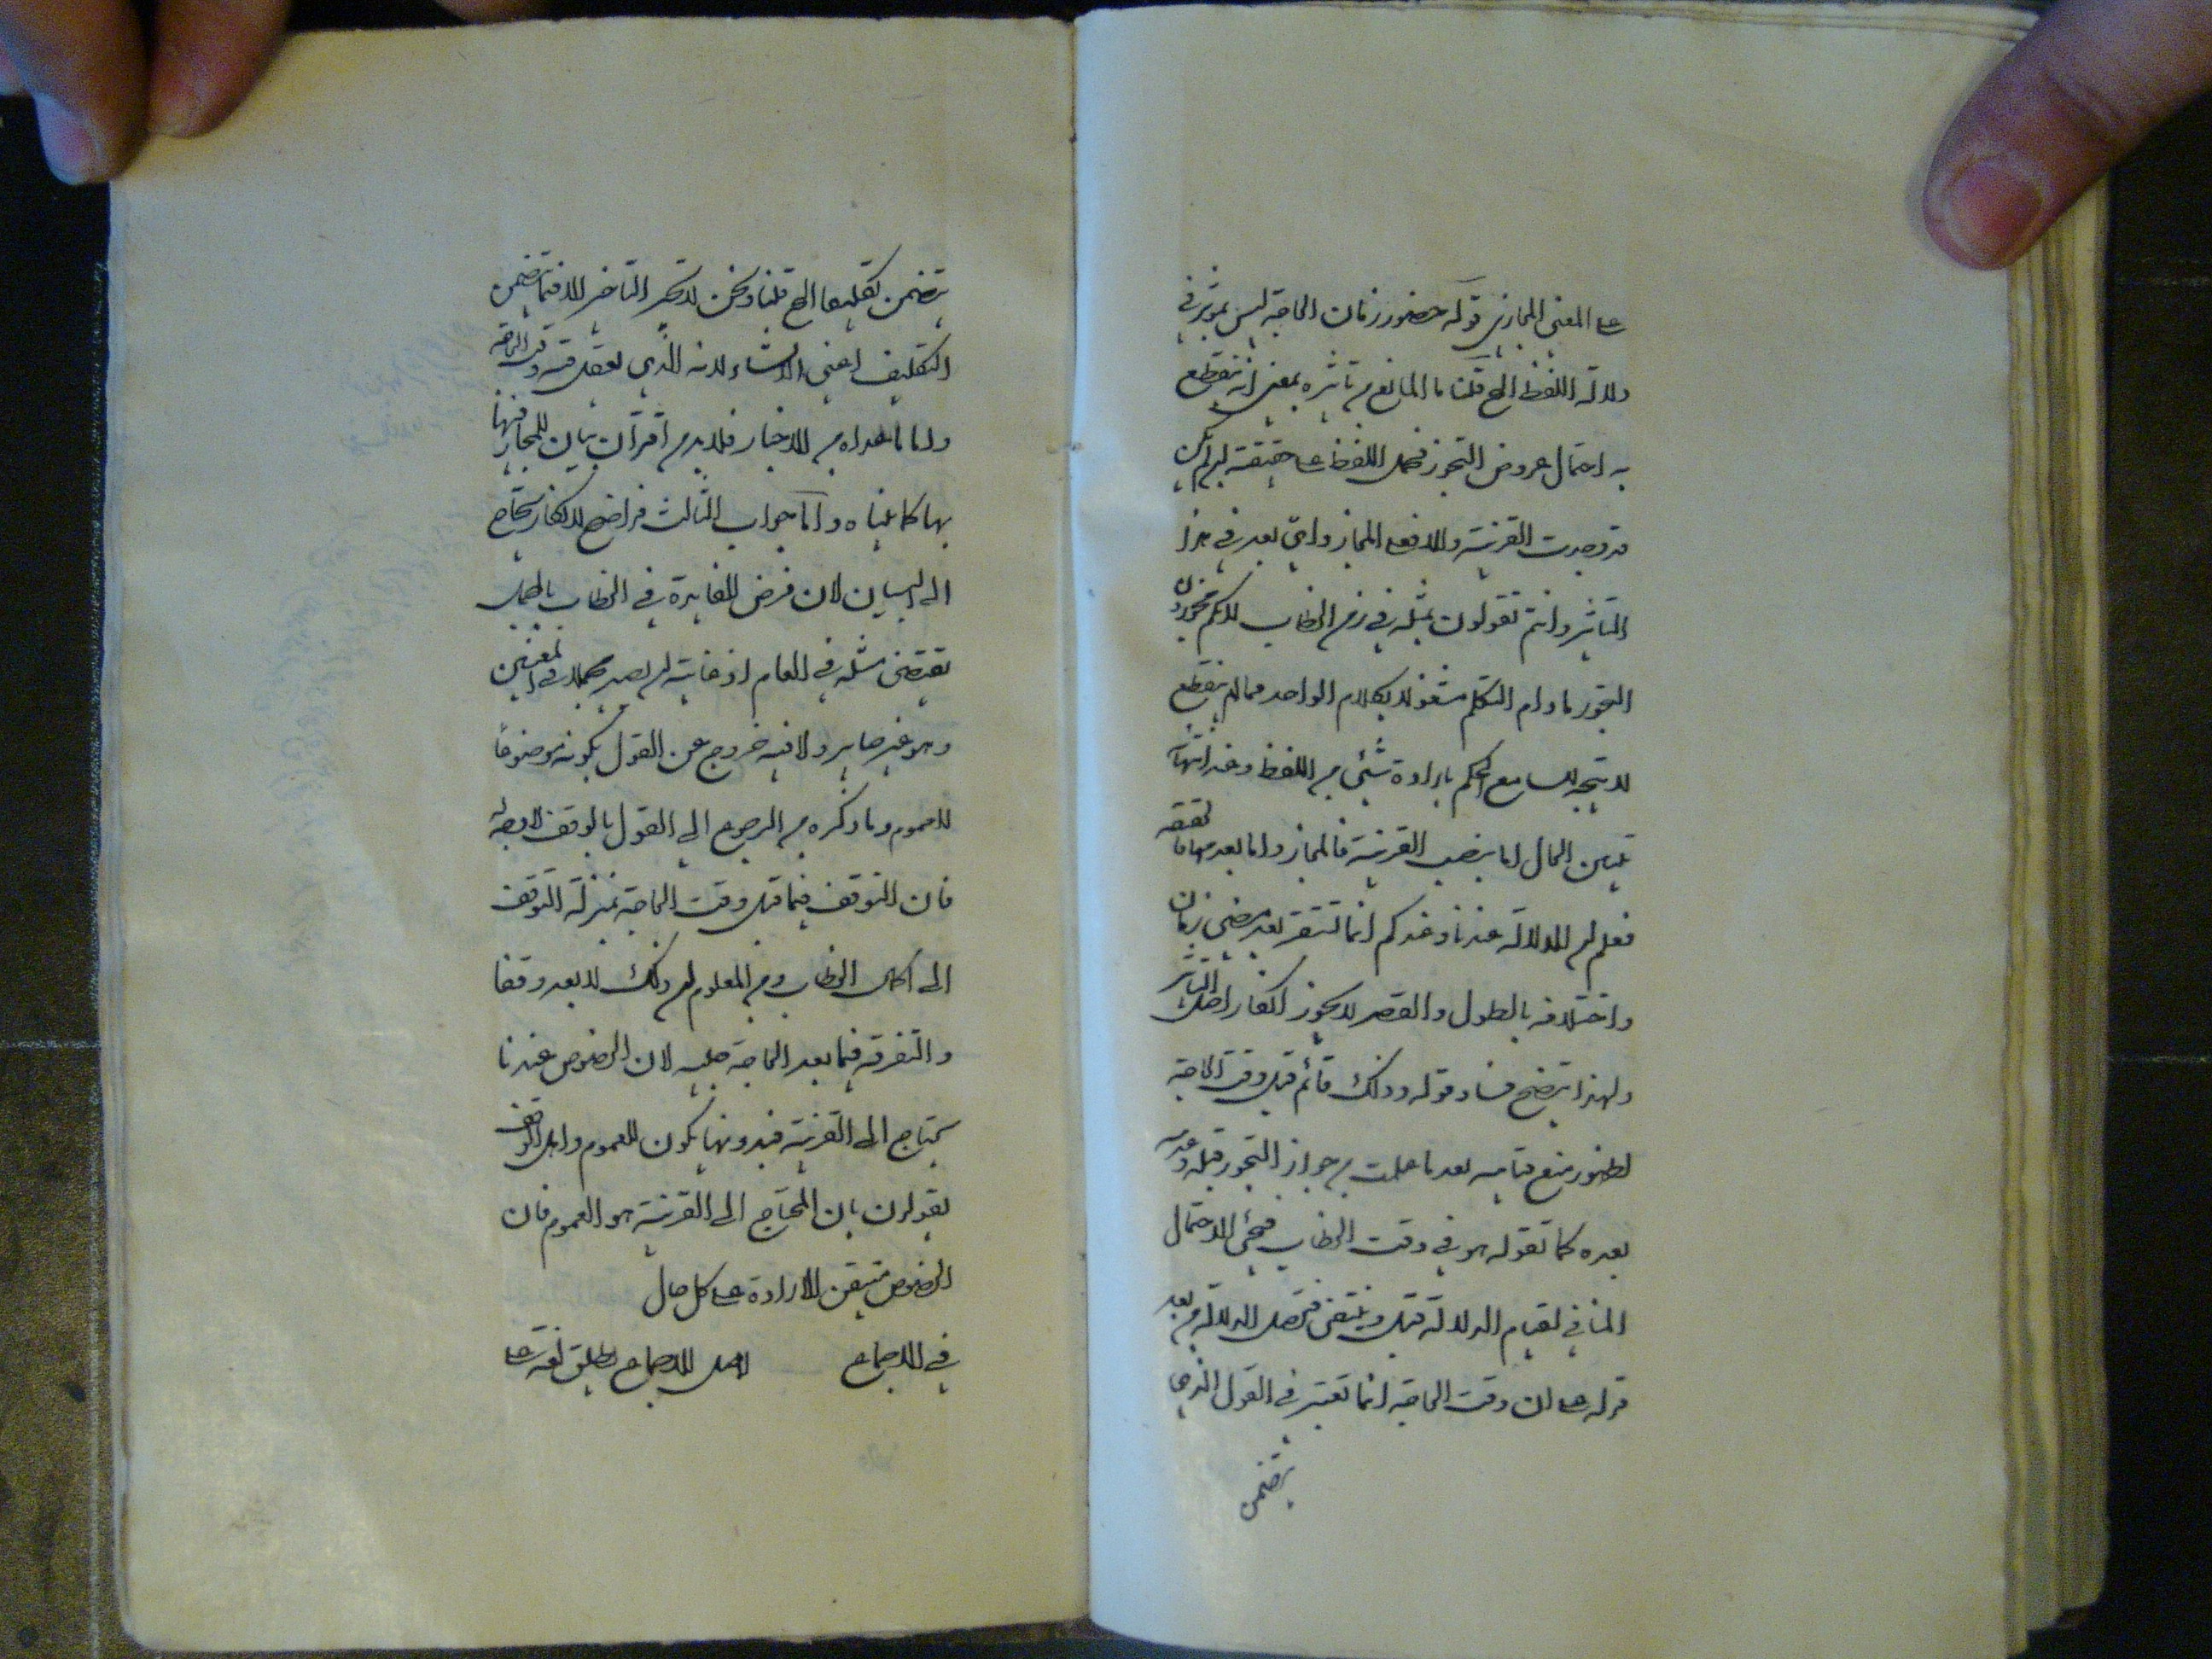 على المعنى المجازي قوله حضور زمان الحاجة ليس بمؤثر في
دلالة اللفظ الخ قلنا ما المانع من تأثيره بمعنى انه ينقطع
به احتمال عروض التجوز فيحمل اللفظ على حقيقته ان لم يكن
قد وجدت القرينة والا فعلى المجاز واي بعد في هذا
التأثير وانتم تقولون بمثله في زمن الخطاب لانكم تجوزون
التجوز ما دام المتكلم مشغولا بكلامه الواحد فما لم ينقطع
لا يتجه للسامع الحكم بارادة شيء من اللفظ وعند انتهائه
يتبين الحال اما بنصب القرينة فالمجاز واما بعدمها فالحقيقة
فعلم ان الدلالة عندنا وعندكم انما تستقر بعد مضي زمان
واختلافه بالطول والقصر لا يجوز انكار اصل التأثير
ولهذا يتضح فساد قوله وذلك قائم قبل وقت الحاجة
لظهور منع قيامه بعد ما علمت من جواز التجوز قبله وعدمه
بعده كما تقوله هو في وقت الخطاب فيجئ الاحتمال
المنافي لقيام الدلالة قبل وينتفي فتحصل الدلالة من بعد
قوله على ان وقت الحاجة انما تعتبر في القول الذي
يتضمن
يتضمن تكليفا الخ قلنا ونحن لا نجيز التأخير الا فيما تضمن
التكليف اعني الانشاء لانه الذي يعقل فيه وقت الحاجة
واما ما عداه من الاخبار فلا بد من اقتران بيان المجاز فيها
بها كما بيناه واما جواب الثالث فواضح لا يكاد يحتاج
الى البيان لان فرض الفايدة في الخطاب بالمجمل
يقتضي مثله في العام اذ غايته ان يصير مجملا في المعنيين
وهو غير ضاير ولا فيه خروج عن القول بكونه موضوعا
للعموم وما ذكره من الرجوع الى القول بالوقف لا وجه له
فان التوقف فيما قبل وقت الحاجة بمنزلة التوقف
الى اكمال الخطاب ومن المعلوم ان ذلك لا يعد وقفا
والتفرقة فيما بعد الحاجة جلية لان الخصوص عندنا
يحتاج الى القرينة فبدونها يكون للعموم واهل الوقف
يقولون بان المحتاج الى القرينة هو العموم فان
الخصوص متيقن الارادة على كل حال
في الاجماع اصل الاجماع يطلق لغة على